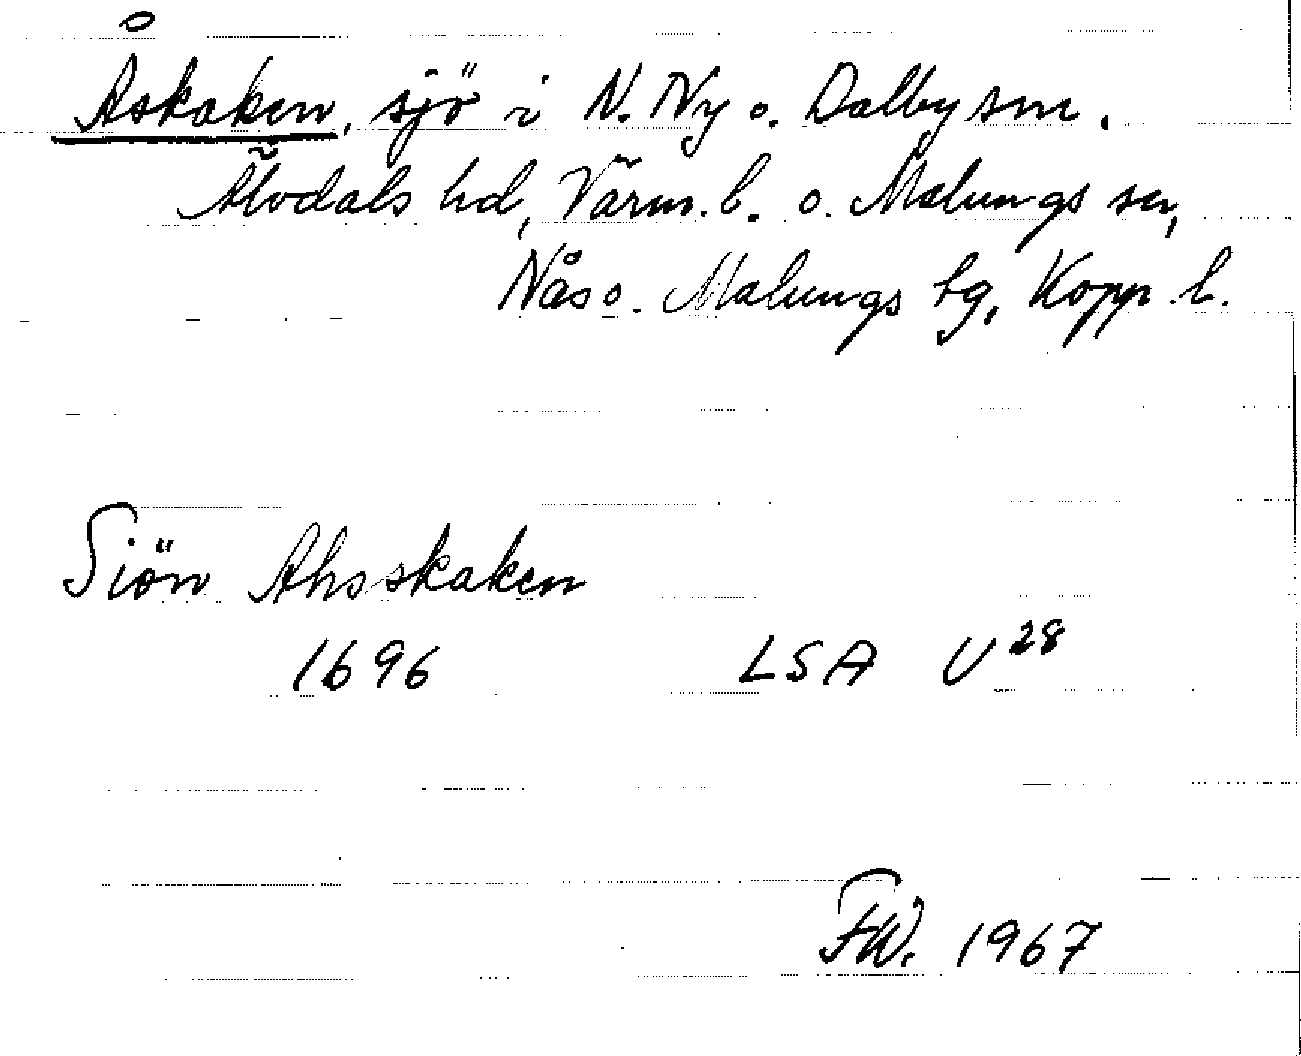 Åskaken, sjö i N. Ny o. Dalby snr.
Älvdals hd, Värm. l. o. Malungs sn,
Nås o. Malungs tg, Kopp. l.
Siön Ahsskaken
1696 LSA U 28
FW. 1967